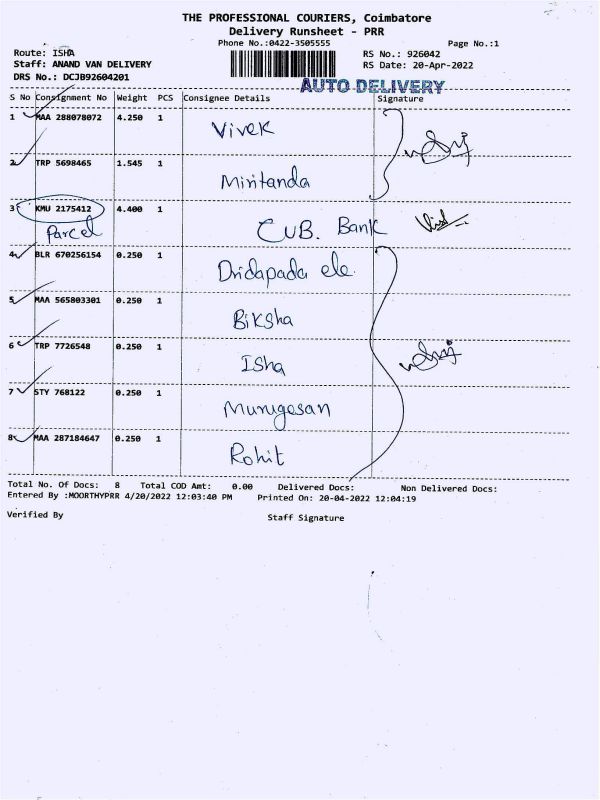 THE PROFESSIONAL COURIERS, Coimbatore
Delivery Runsheet - PRR
Phone No.:0422-3505555 Page No.:1
Route: ISHA RS No.: 926042
Staff: ANAND VAN DELIVERY RS Date: 20-Apr-2022
DRS No.: DCJB92604201
AUTO DELIVERY
S No Consignment No Weight PCS Consignee Details Signature
1 MAA 288078072 4.250 1 Vivek
2 TRP 5698465 1.545 1 Miritanda
3 KMU 2175412 4.400 1 CUB. Bank
Parcel
4 BLR 670256154 0.250 1 Dridapada ele
5 MAA 565803301 0.250 1 Biksha
6 TRP 7726548 0.250 1 Isha
7 STY 768122 0.250 1 Murugesan
8 MAA 287184647 0.250 1 Rohit
Total No. Of Docs: 8 Total COD Amt: 0.00 Delivered Docs: Non Delivered Docs:
Entered By :MOORTHYPRR 4/20/2022 12:03:40 PM Printed On: 20-04-2022 12:04:19
Verified By Staff Signature